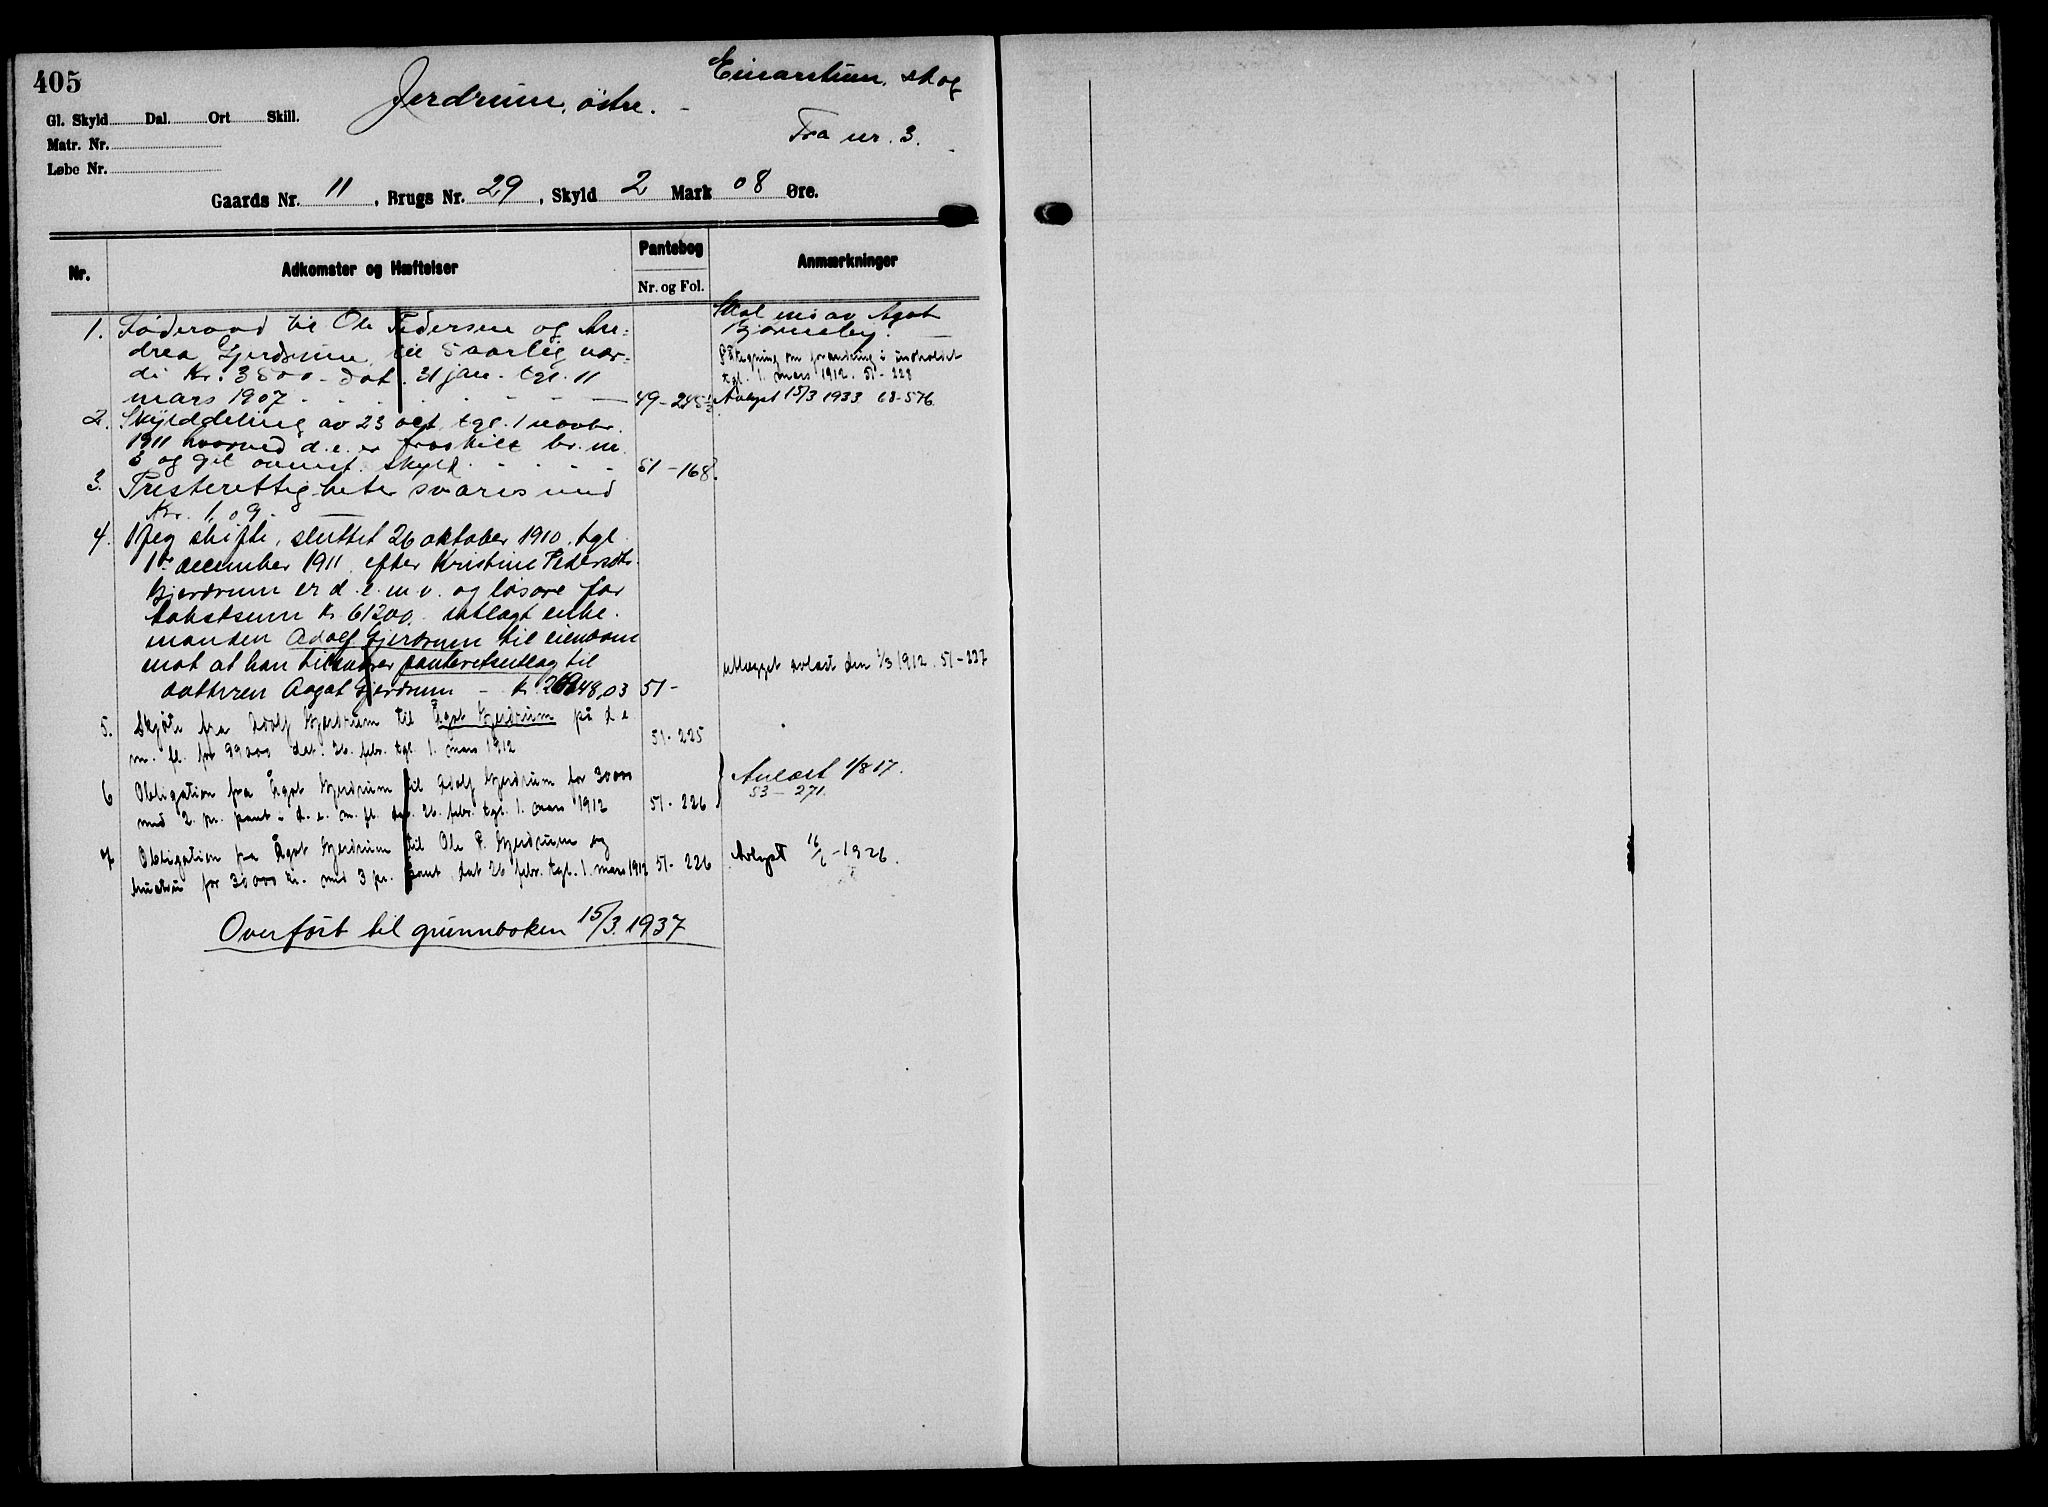 405
Jerdrum, østre. - skog
Gl. Skyld Dal. Ort Skill.
Matr. Nr.
Fra nr. 3.
Løbe Nr.
Gaards Nr. 11, Brugs Nr. 29, Skyld 2 Mark 08 Øre.
Nr. Adkomster og Hæftelser Pantebog Anmærkninger
Nr. og Fol.
1. Føderaad til Ole Pedersen og An-
drea Gjerdrum til 5 aarlig vær-
di Kr. 3500 - dat. 31 jan. tgl. 11
mars 1907 - 49-245½
Agot
Bjørneby.
Påtegning om forandring i indholdet
tgl. 1. mars 1912. 51-228
Avlyst 15/3 1933 68-576.
2. Skylddeling av 23 oct. tgl. 1 novbr.
1911 hvorved d. e. er fraskilt br. nr.
3 og git ovennt. skyld. - 51-168.
3. Tristerettigheter svares med
Kr. 1.09.
4. Ifølg skifte, sluttet 26 oktober 1910, tgl.
1ste december 1911, efter Kristine Pedersdtr.
Gjerdrum er d. e. m. v. og løsøre for
takstsum Kr. 61200. utlagt enke-
manden Adolf Gjerdrum til eiendom
mot at han tilsvarer panteretsutlæg til
datteren Aagot Gjerdrum - Kr. 26948,03 51-
utlægget avlæst den 1/3 1912. 51-227
5. Skjøte fra Adolf Gjerdrum til Ågot Gjerdrum på d. e.
m. fl. for 99200 dat. 26. febr. tgl. 1. mars 1912 51-225
6 Obligation fra Ågot Gjerdrum til Adolf Gjerdrum for 30000
med 2. pr. pant i d. e. m. fl. dat. 26. febr. tgl. 1. mars 1912 51-226
Avlæst 1/8 17.
53-271.
7 Obligation fra Ågot Gjerdrum til Ole P. Gjerdrum og
hustru for 30000 kr. med 3 pr. pant dat 26 febr. tgl. 1. mars 1912 51-226
Avlyst 16/6-1926.
Overført til grunnboken 15/3.1937